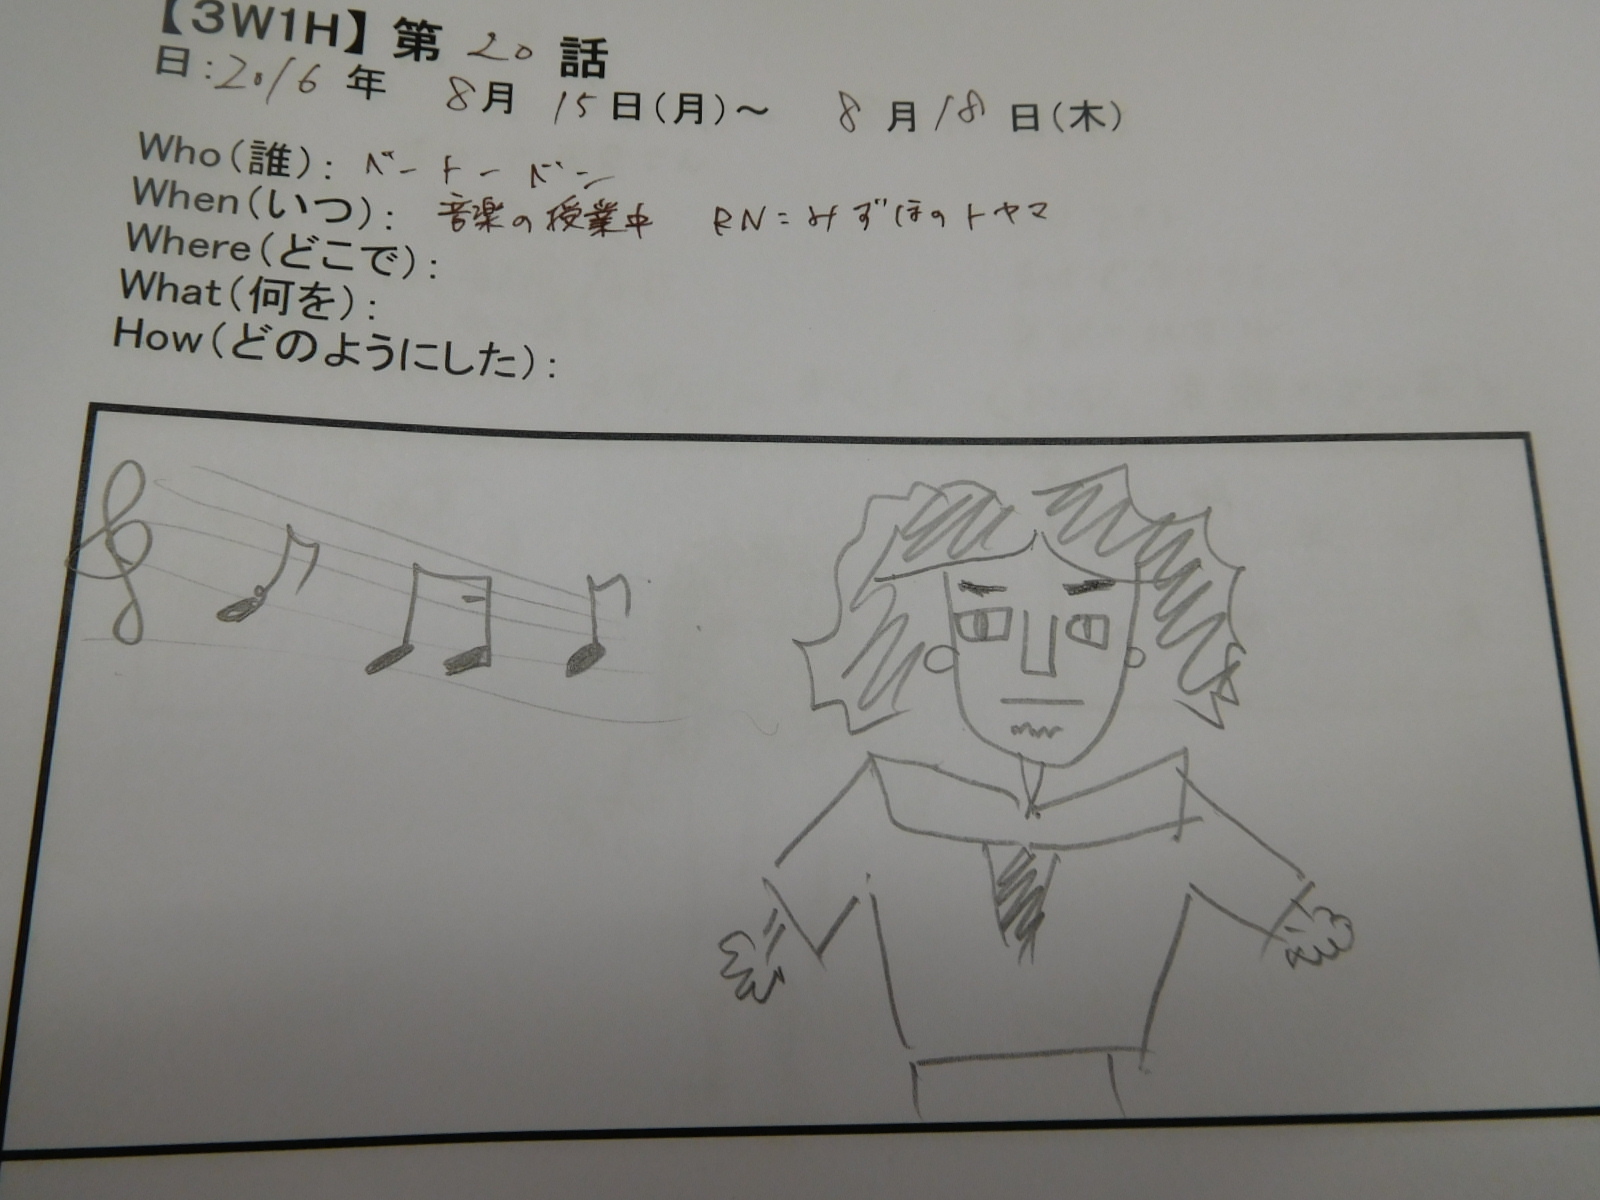 【3W1H】第20話
日:2016年 8月15日(月)~ 8月18日(木)
Who(誰): ベートーベン
When(いつ): 音楽の授業中 RN=みずほのトヤマ
Where(どこで):
What(何を):
How(どのようにした):